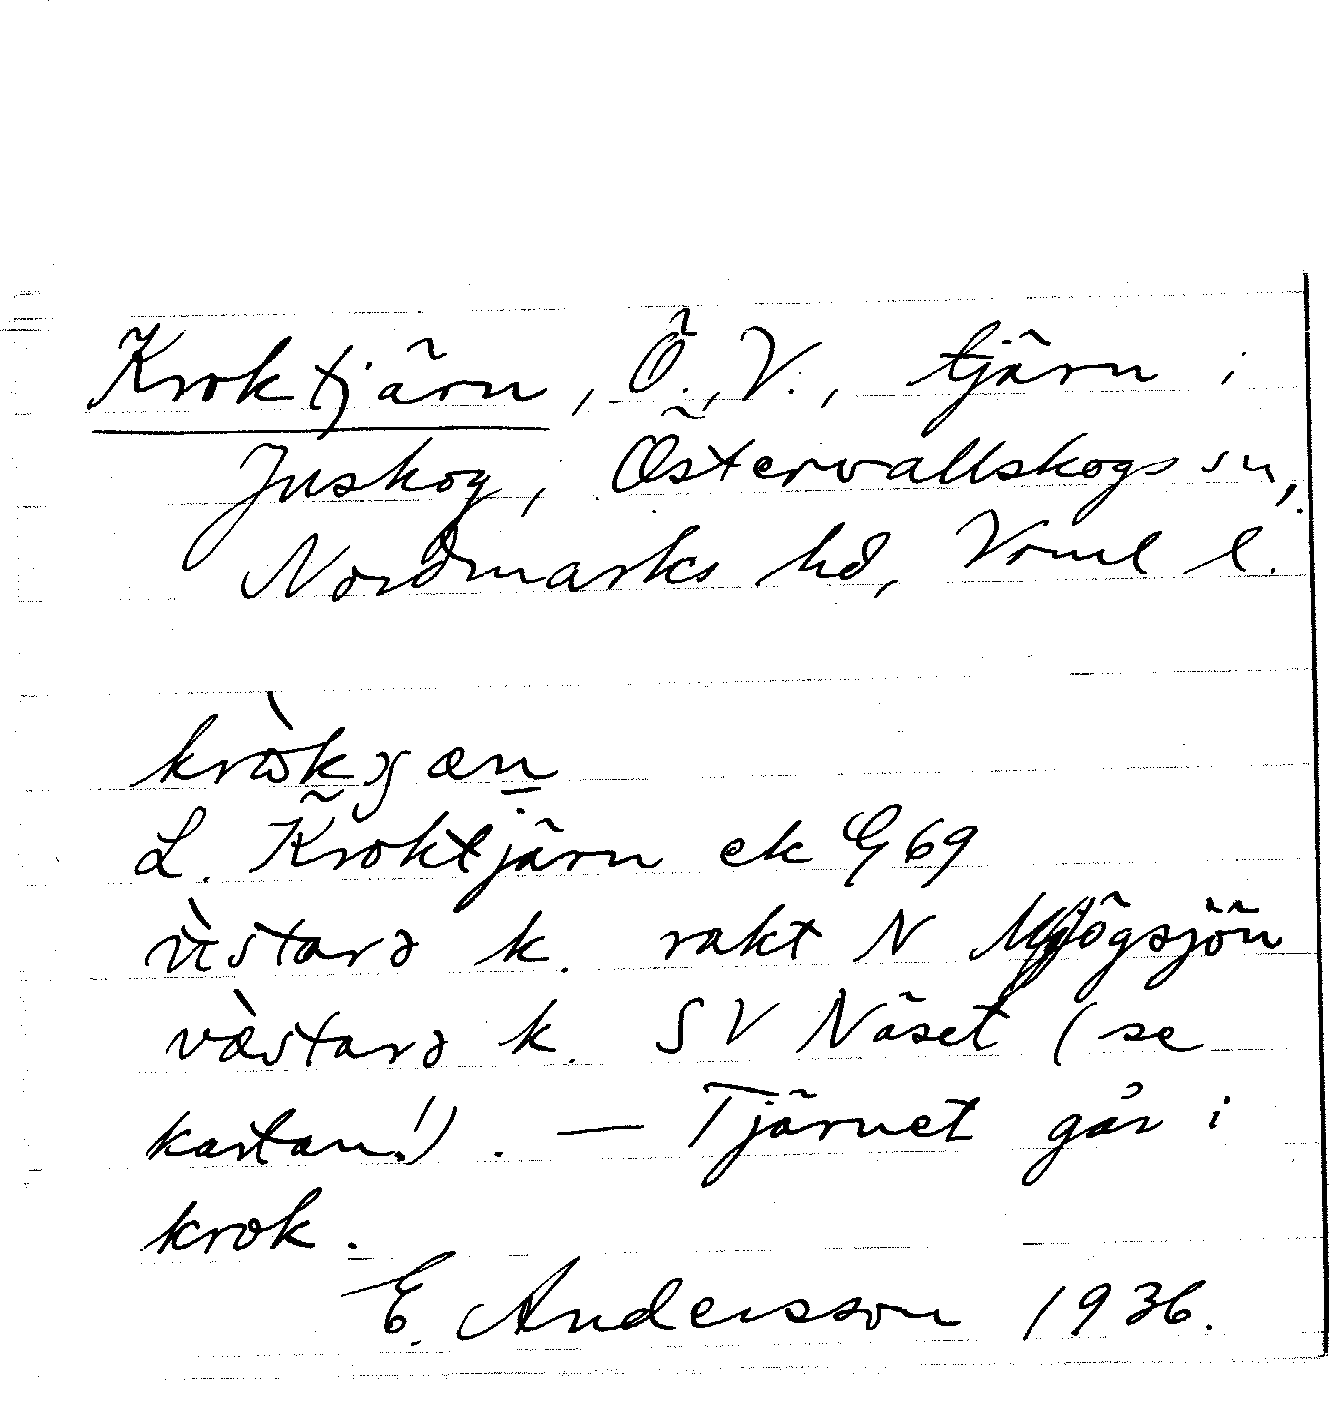 Kroktjärn, Ö., V., tjärn i
Juskog, Östervallskogs sn,
Nordmarks hd, Vrml l.
L. Kroktjärn ek G 69
k. rakt N
västarə k. SV Näset (se
kartan!). — Tjärnet går i
krok.
E. Andersson 1936.